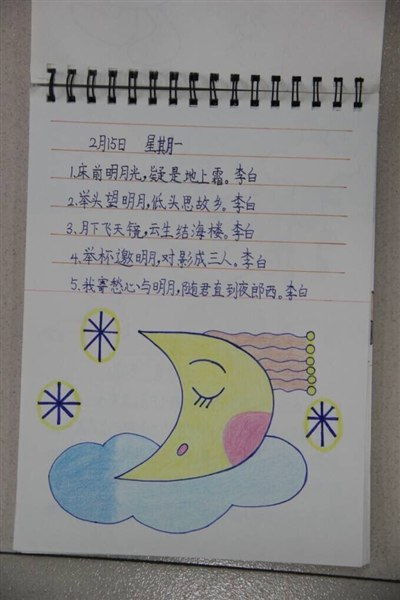 2月15日 星期一
1.床前明月光,疑是地上霜。李白
2.举头望明月,低头思故乡。李白
3.月下飞天镜,云生结海楼。李白
4.举杯邀明月,对影成三人。李白
5.我寄愁心与明月,随君直到夜郎西。李白